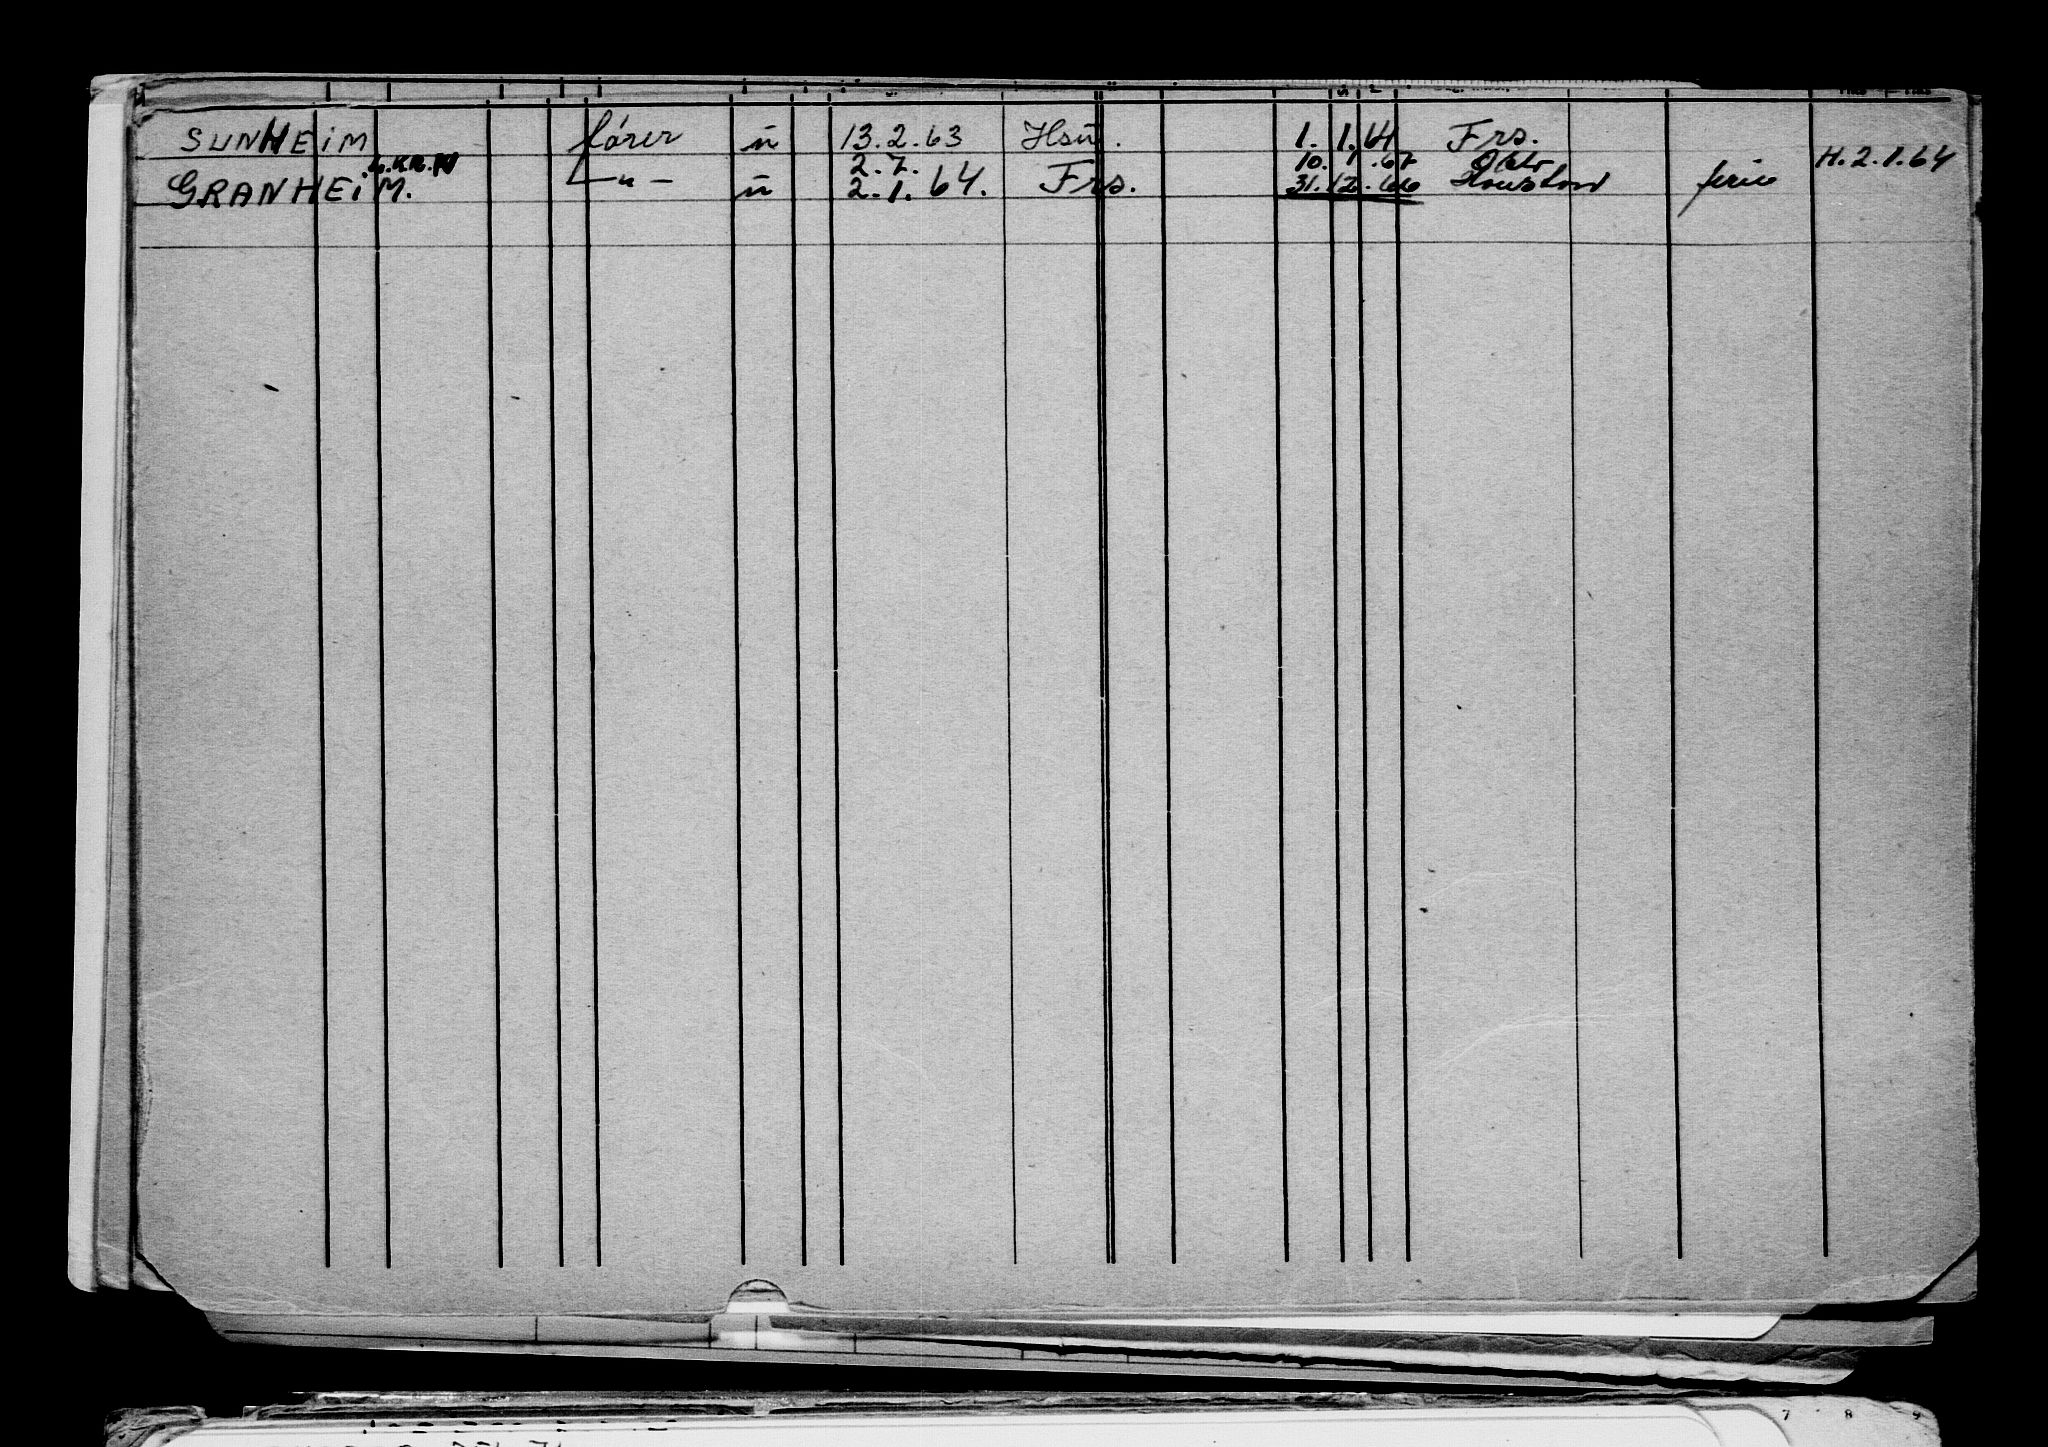 SUNHEIM fører u 13.2.63 Hsu. 1. 1. 64 Frs.
KR.N 2.7. 10. 1. 67 H.2.1.64
GRANHEIM. —"— u 2.1.64. Frs. 31.12.66 Houston ferie
7 8 9